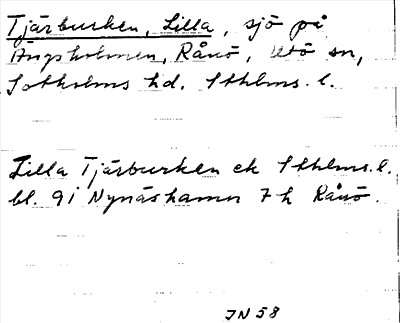 Tjärburken, Lilla, sjö på
Ängsholmen, Rånö, Utö sn,
Sotholms hd. Sthlms. l.
Lilla Tjärburken ek Sthlms. l.
bl. 9i Nynäshamn 7 h Rånö.
JN 58